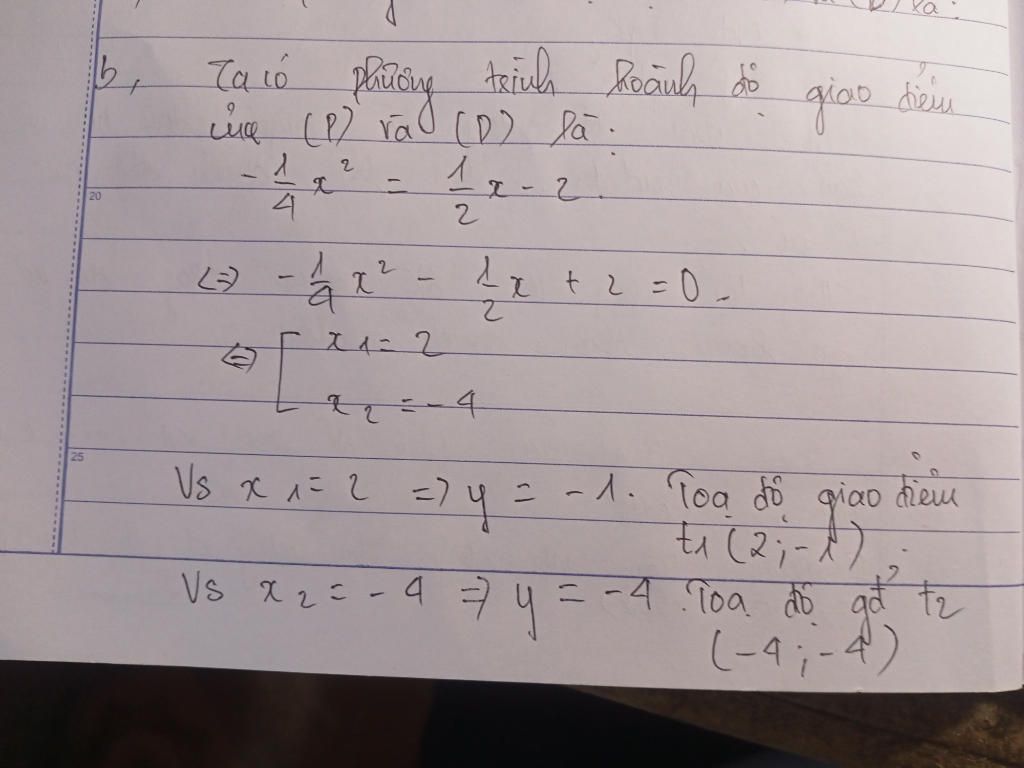 là:
b, Ta có phương trình hoành độ giao điểm
của (P) và (D) là:
-1/4 x² = 1/2 x - 2.
<=> -1/4 x² - 1/2 x + 2 = 0
<=> [ x1 = 2
x2 = -4
Vs x1 = 2 => y = -1. Toạ độ giao điểm
t1 (2; -1).
Vs x2 = -4 => y = -4. Toạ độ gđ t2
(-4; -4)
20
25